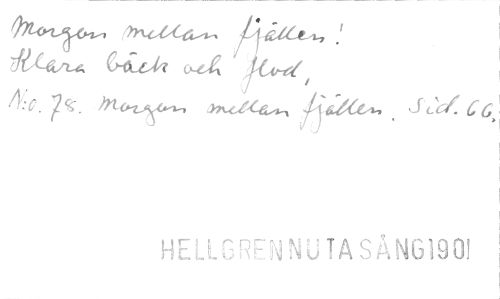 Morgon mellan fjällen!
Klara bäck och flod,
N:o. 78. Morgon mellan fjällen. Sid. 66.
HELLGREN NUTA SÅNG 1901